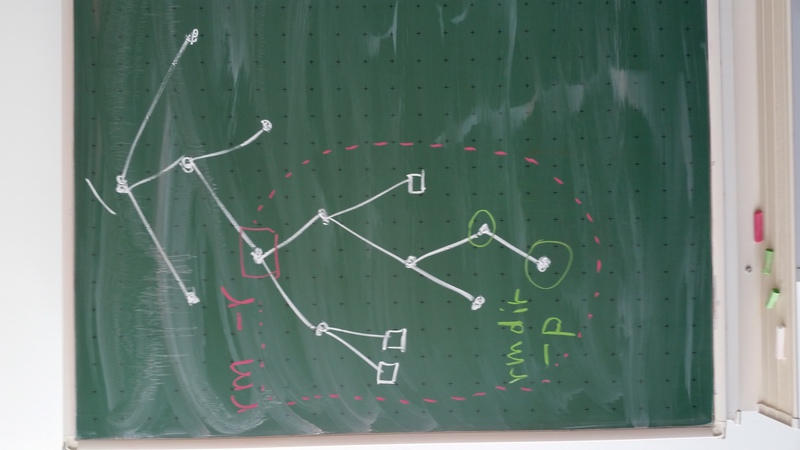 /
rm -r ....
rmdir
-p